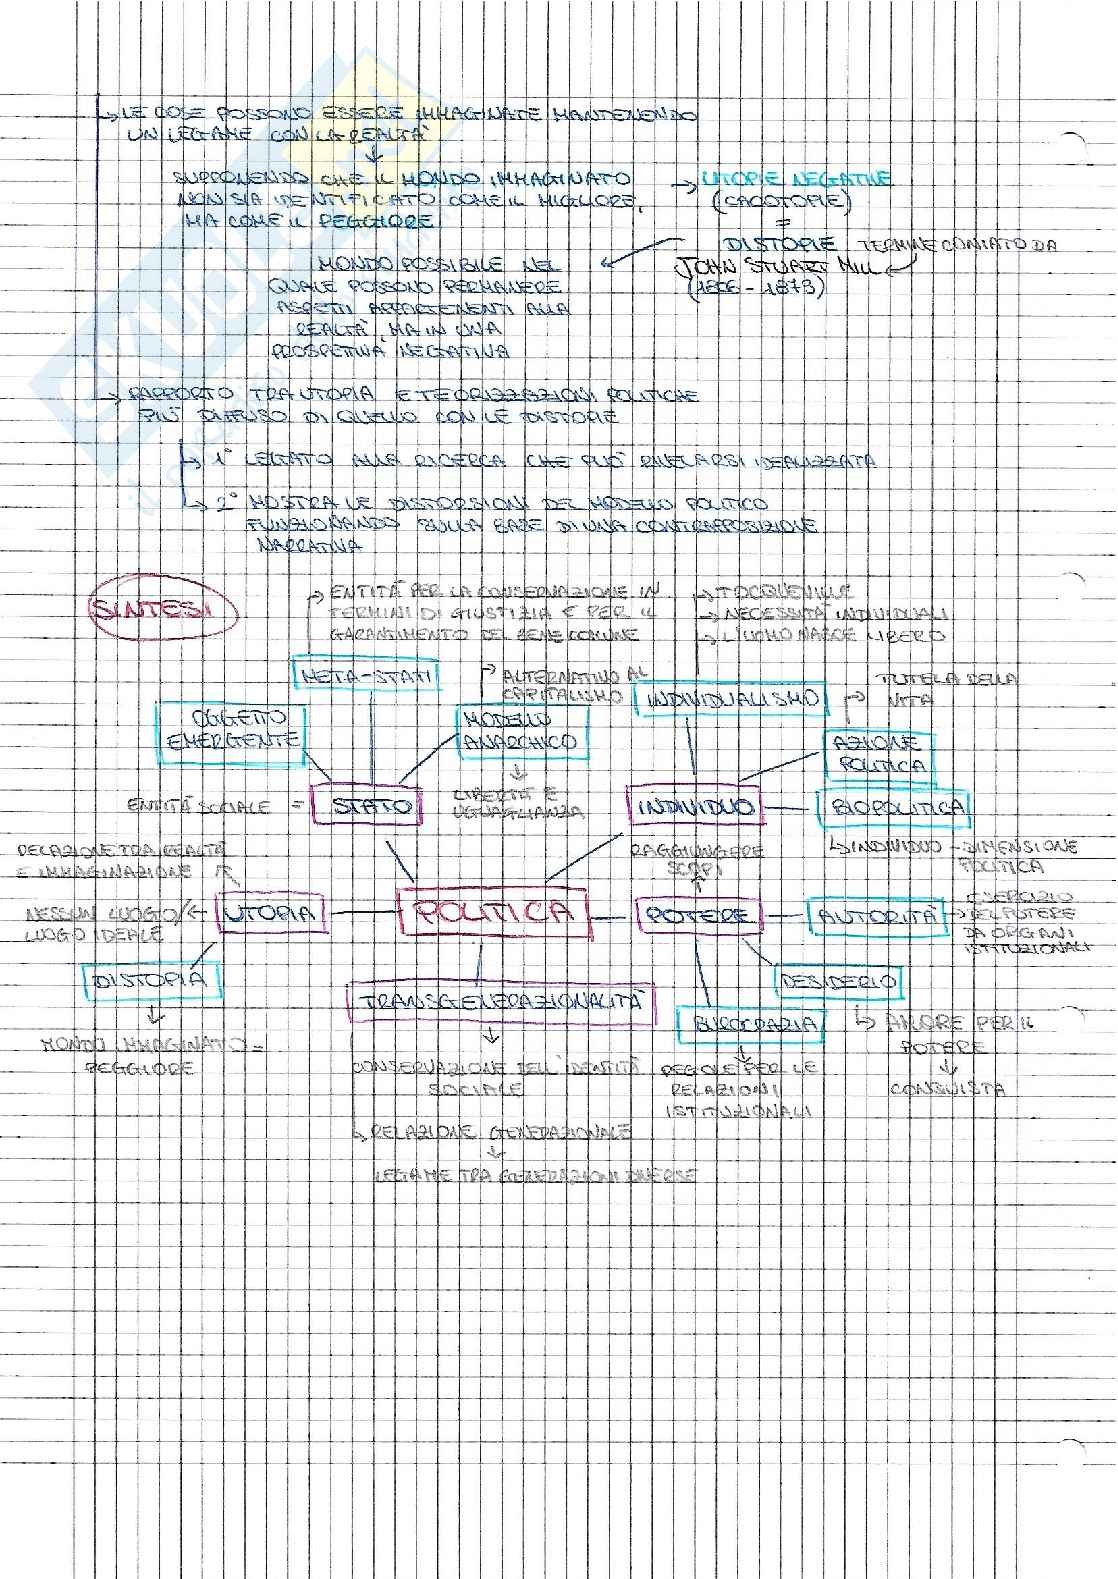 LE COSE POSSONO ESSERE IMMAGINATE MANTENENDO
UN LEGAME CON LA REALTÀ
SUPPONENDO CHE IL MONDO IMMAGINATO
NON SIA IDENTIFICATO COME IL MIGLIORE,
MA COME IL PEGGIORE
→ UTOPIE NEGATIVE
(CACOTOPIE)
=
DISTOPIE TERMINE CONIATO DA
JOHN STUART MILL
(1806-1873)
MONDO POSSIBILE NEL
QUALE POSSONO PERMANERE
ASPETTI APPARTENENTI ALLA
REALTÀ, MA IN UNA
PROSPETTIVA NEGATIVA
RAPPORTO TRA UTOPIA E TEORIZZAZIONI POLITICHE
PIÙ DIFFUSO DI QUELLO CON LE DISTOPIE
1° LEGATO ALLA RICERCA CHE PUÒ RIVELARSI IDEALIZZATA
2° MOSTRA LE DISTORSIONI DEL MODELLO POLITICO
FUNZIONANDO SULLA BASE DI UNA CONTRAPPOSIZIONE
NARRATIVA
SINTESI
ENTITÀ PER LA CONSERVAZIONE IN
TERMINI DI GIUSTIZIA E PER IL
GARANTIMENTO DEL BENE COMUNE
→ TOCQUEVILLE
→ NECESSITÀ INDIVIDUALI
→ L'UOMO NASCE LIBERO
META-STATI
ALTERNATIVO AL
CAPITALISMO
INDIVIDUALISMO
TUTELA DELLA
VITA
OGGETTO
EMERGENTE
MODELLO
ANARCHICO
AZIONE
POLITICA
ENTITÀ SOCIALE =
STATO
LIBERTÀ E
UGUAGLIANZA
INDIVIDUO
BIOPOLITICA
RELAZIONE TRA REALTÀ
E IMMAGINAZIONE
RAGGIUNGERE
SCOPI
INDIVIDUO - DIMENSIONE
POLITICA
NESSUN LUOGO/
LUOGO IDEALE
UTOPIA
POLITICA
POTERE
AUTORITÀ
ESERCIZIO
DEL POTERE
DA ORGANI
ISTITUZIONALI
DISTOPIA
TRANSGENERAZIONALITÀ
DESIDERIO
BUROCRAZIA
AMORE PER IL
POTERE
CONQUISTA
MONDO IMMAGINATO =
PEGGIORE
CONSERVAZIONE DELL'IDENTITÀ
SOCIALE
REGOLE PER LE
RELAZIONI
ISTITUZIONALI
RELAZIONE GENERAZIONALE
LEGAME TRA GENERAZIONI DIVERSE